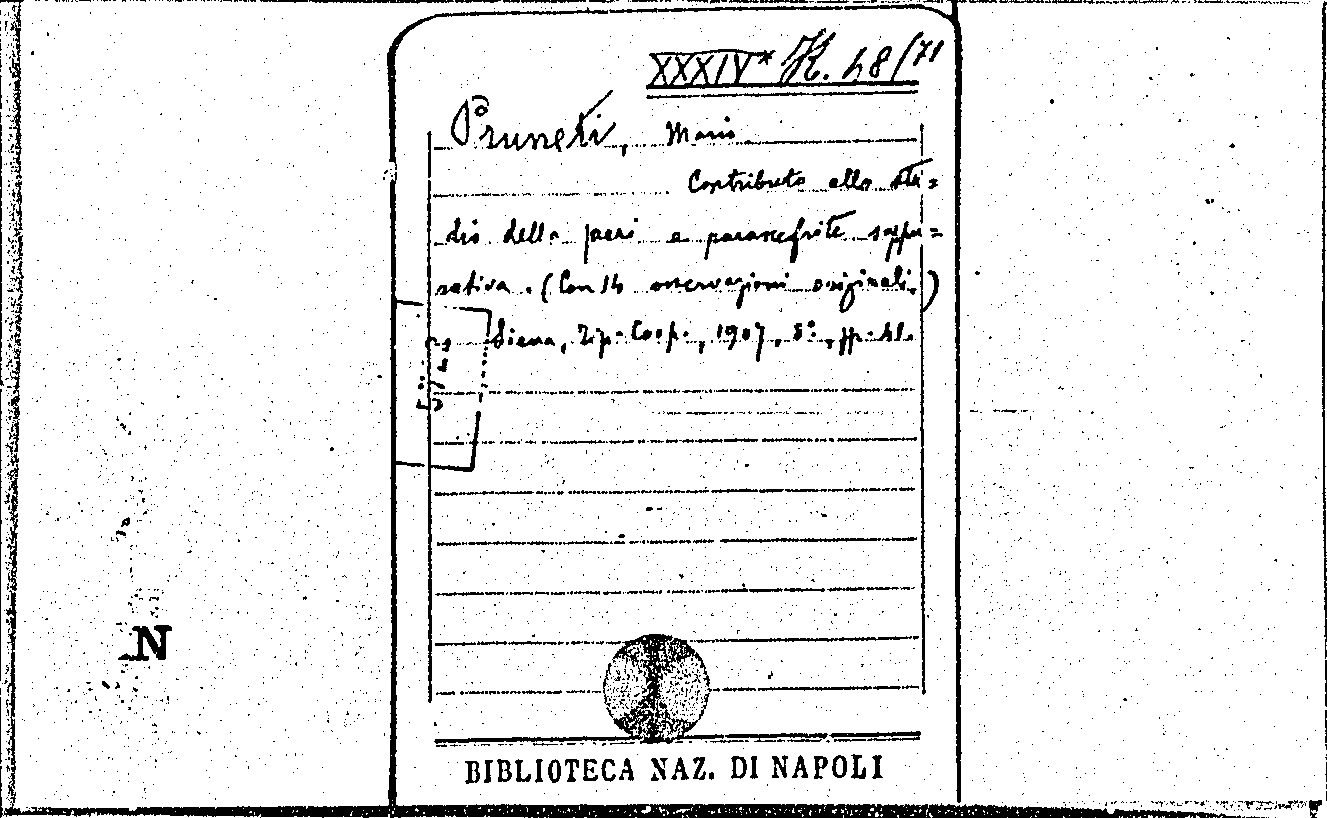 XXXIV* K. 48/71
Pruneti, Mario
Contributo allo stu=
dio della peri e paranefrite suppu=
rativa. (Con 14 osservazioni originali.)
Siena, Tip. Coop., 1907, 8°, pp. 41.
N
BIBLIOTECA NAZ. DI NAPOLI